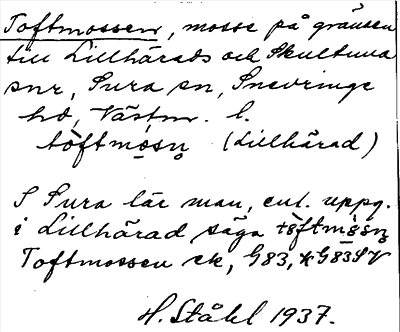 Toftmossen, mosse på gränsen
till Lillhärads och Skultuna
snr, Sura sn, Snevringe
hd, Västm. l.
tòftmo̠sn̥ (Lillhärad)
I Sura lär man, enl. uppg.
i Lillhärad säga
Toftmossen ek, G83, *G83SV
H. Ståhl 1937.